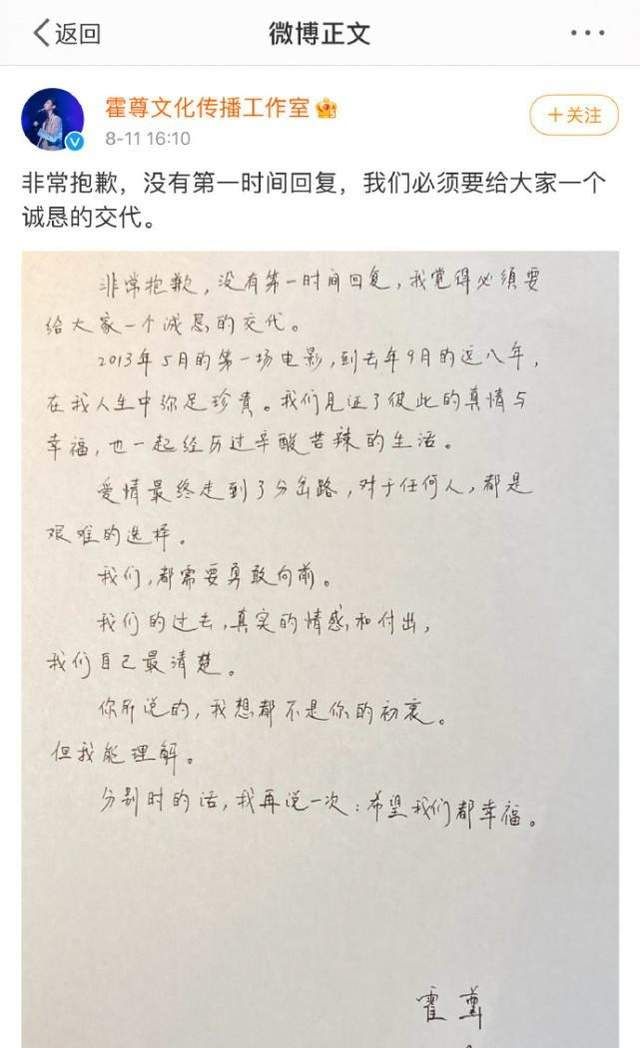 返回
微博正文
霍尊文化传播工作室
8-11 16:10
+关注
非常抱歉，没有第一时间回复，我们必须要给大家一个
诚恳的交代。
非常抱歉，没有第一时间回复，我觉得必须要
给大家一个诚恳的交代。
2013年5月的第一场电影，到去年9月的这八年，
在我人生中弥足珍贵。我们见证了彼此的真情与
幸福，也一起经历过辛酸苦辣的生活。
爱情最终走到了分岔路，对于任何人，都是
艰难的选择。
我们，都需要勇敢向前。
我们的过去，真实的情感和付出，
我们自己最清楚。
你所说的，我想都不是你的初衷。
但我能理解。
分别时的话，我再说一次：希望我们都幸福。
霍尊